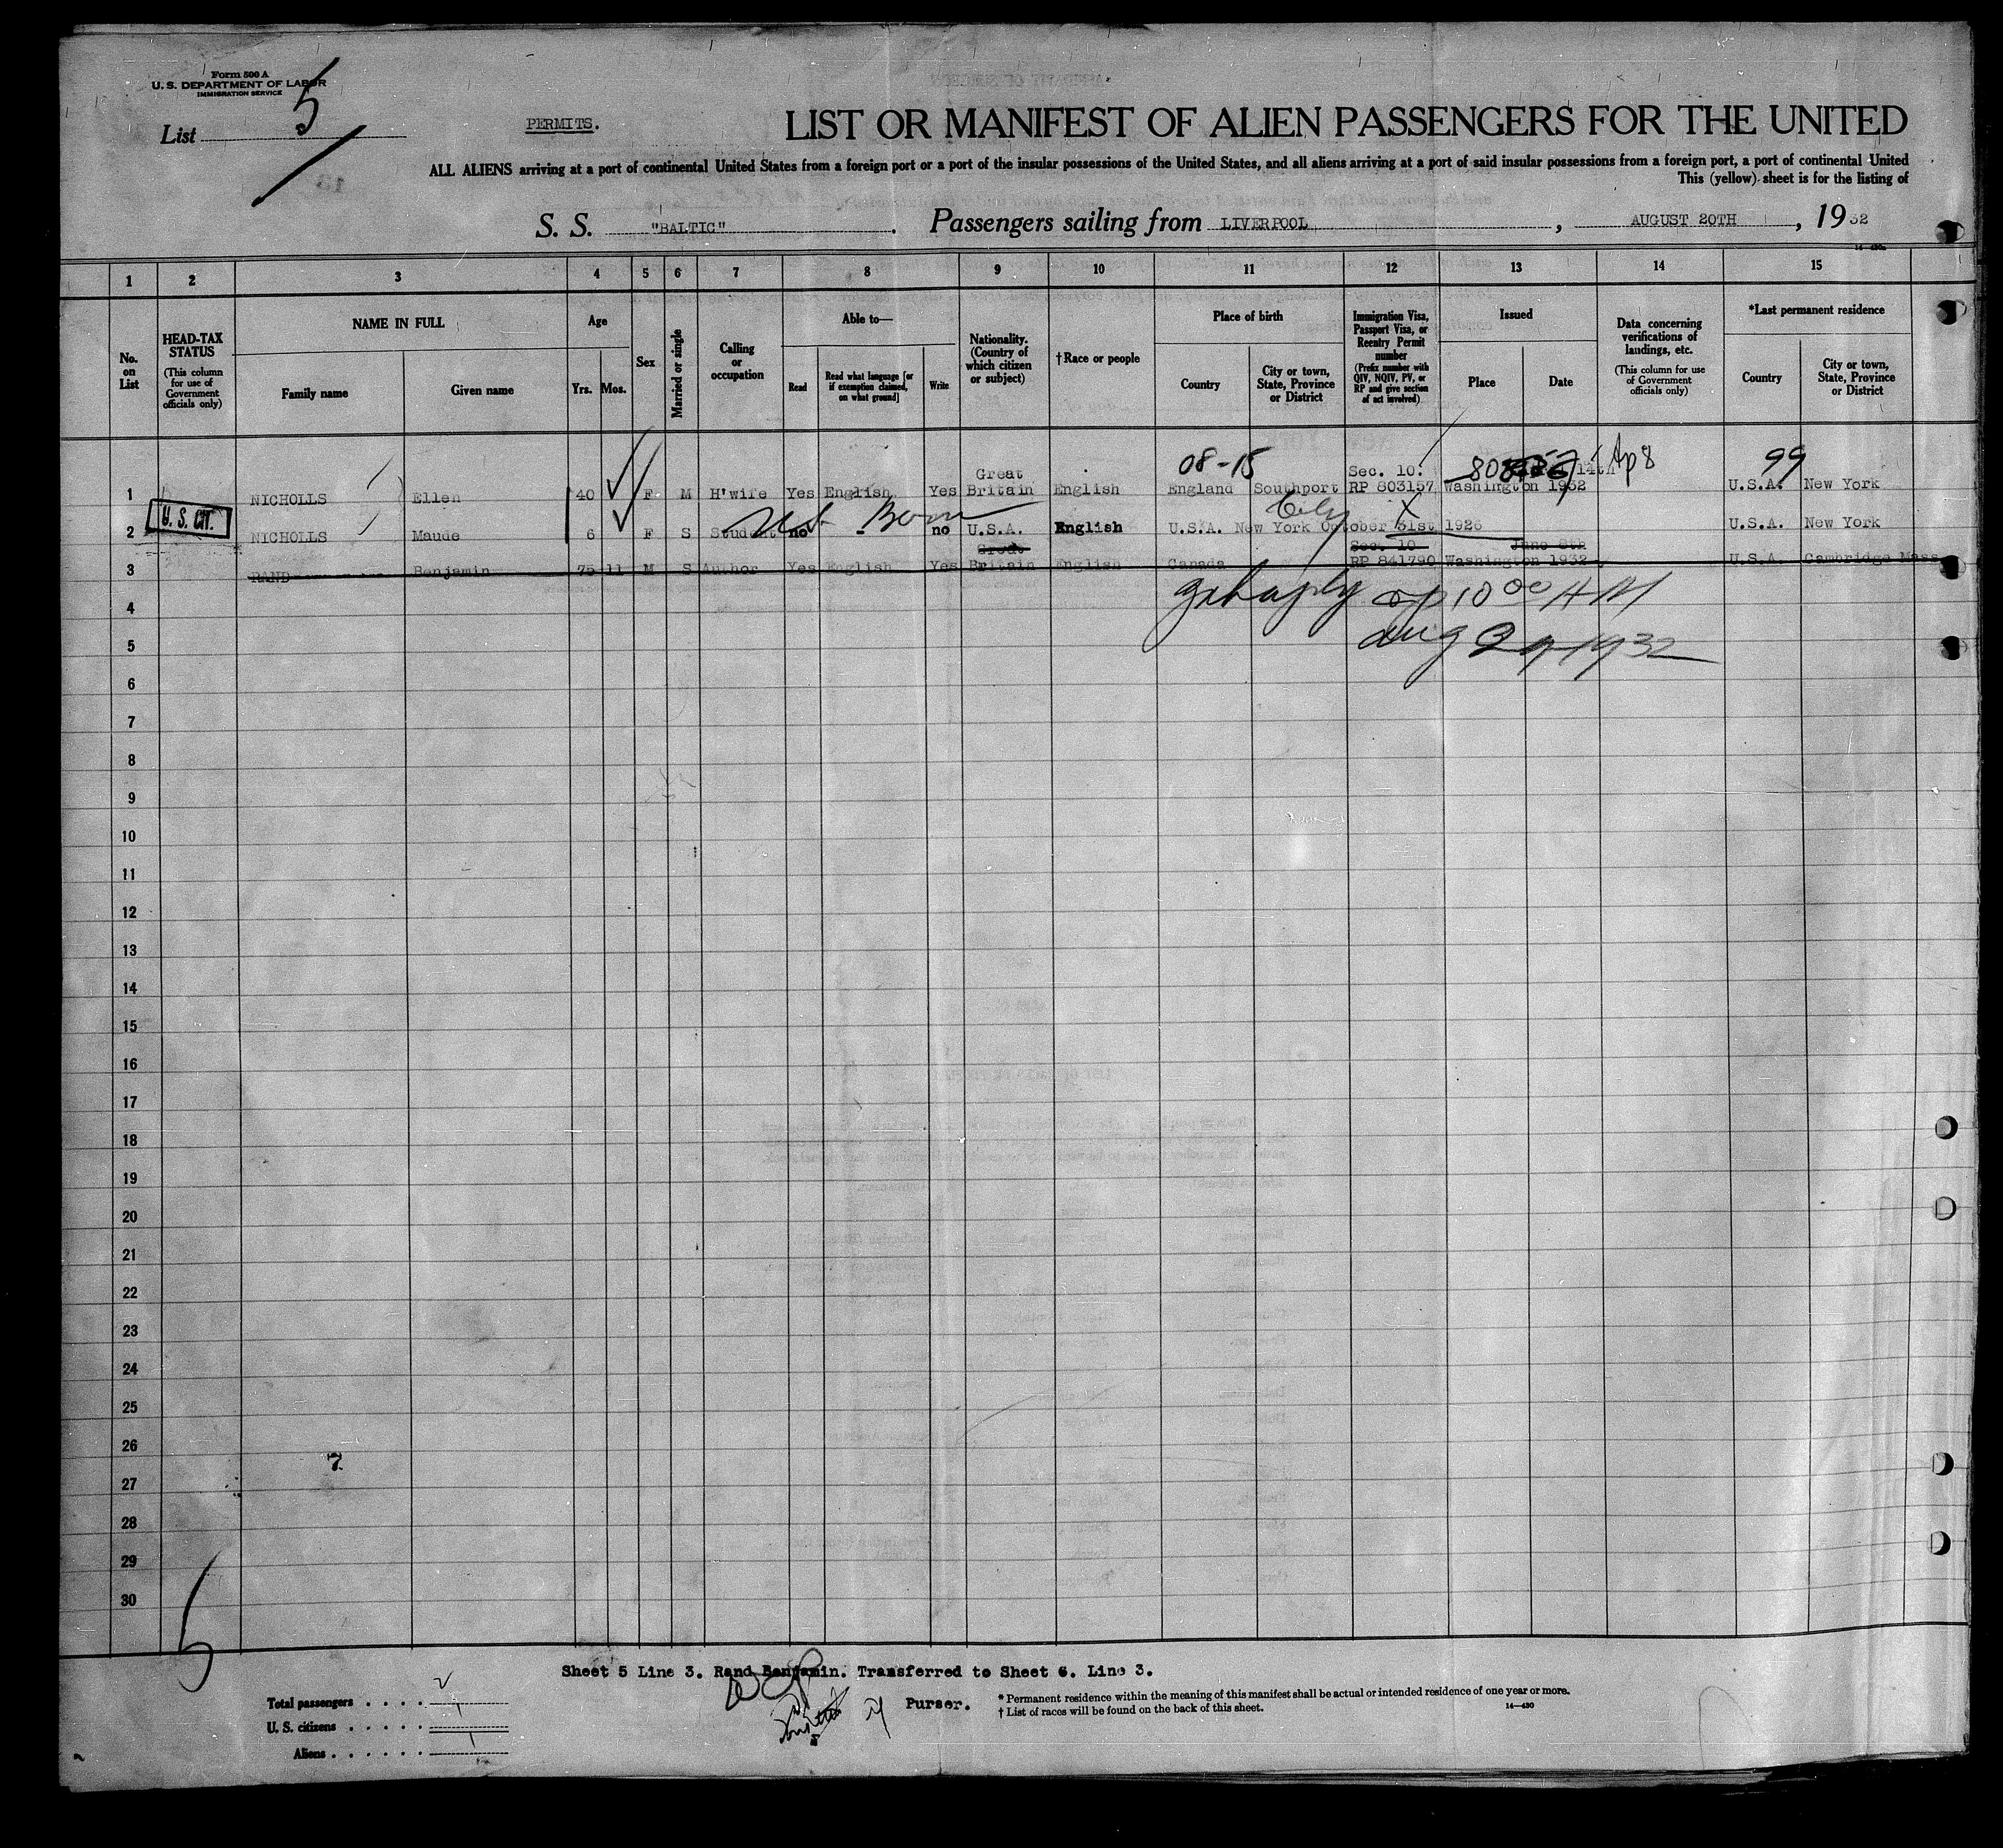 Form 500 A
U. S. DEPARTMENT OF LABOR
IMMIGRATION SERVICE
List 5
PERMITS.
LIST OR MANIFEST OF ALIEN PASSENGERS FOR THE UNITED
ALL ALIENS arriving at a port of continental United States from a foreign port or a port of the insular possessions of the United States, and all aliens arriving at a port of said insular possessions from a foreign port, a port of continental United
This (yellow) sheet is for the listing of
S. S. "BALTIC". Passengers sailing from LIVERPOOL, AUGUST 20TH, 1932
1 2 3 4 5 6 7 8 9 10 11 12 13 14 15
No. on List
HEAD-TAX STATUS (This column for use of Government officials only)
NAME IN FULL
Family name
Given name
Age
Yrs. Mos.
Sex
Married or single
Calling or occupation
Able to—
Read
Read what language [or if exemption claimed, on what ground]
Write
Nationality. (Country of which citizen or subject)
†Race or people
Place of birth
Country
City or town, State, Province or District
Immigration Visa, Passport Visa, or Reentry Permit number (Prefix number with QIV, NQIV, PV, or RP and give section of act involved)
Issued
Place
Date
Data concerning verifications of landings, etc. (This column for use of Government officials only)
*Last permanent residence
Country
City or town, State, Province or District
08-15 99
Great Sec. 10. 14th Ap 8
1 NICHOLLS Ellen 40 F M H'wife Yes English Yes Britain English England Southport RP 803157 Washington 1932 U.S.A. New York
U. S. CIT. U.S. Born City X
2 NICHOLLS Maude 6 F S Student no - no U.S.A. English U.S.A. New York October 31st 1925 U.S.A. New York
Great Sec. 10 June 8th
3 RAND Benjamin 75 11 M S Author Yes English Yes Britain English Canada RP 841790 Washington 1932 U.S.A. Cambridge Mass
10 00 AM
4
Aug 29-1932
5
6
7
8
9
10
11
12
13
14
15
16
17
18
19
20
21
22
23
24
25
26
7
27
28
29
30
5
Sheet 5 Line 3. Rand Benjamin. Transferred to Sheet 6. Line 3.
Purser.
Total passengers . . . .
U. S. citizens . . . . . 1
Aliens . . . . . . 1
* Permanent residence within the meaning of this manifest shall be actual or intended residence of one year or more.
† List of races will be found on the back of this sheet.
14—430